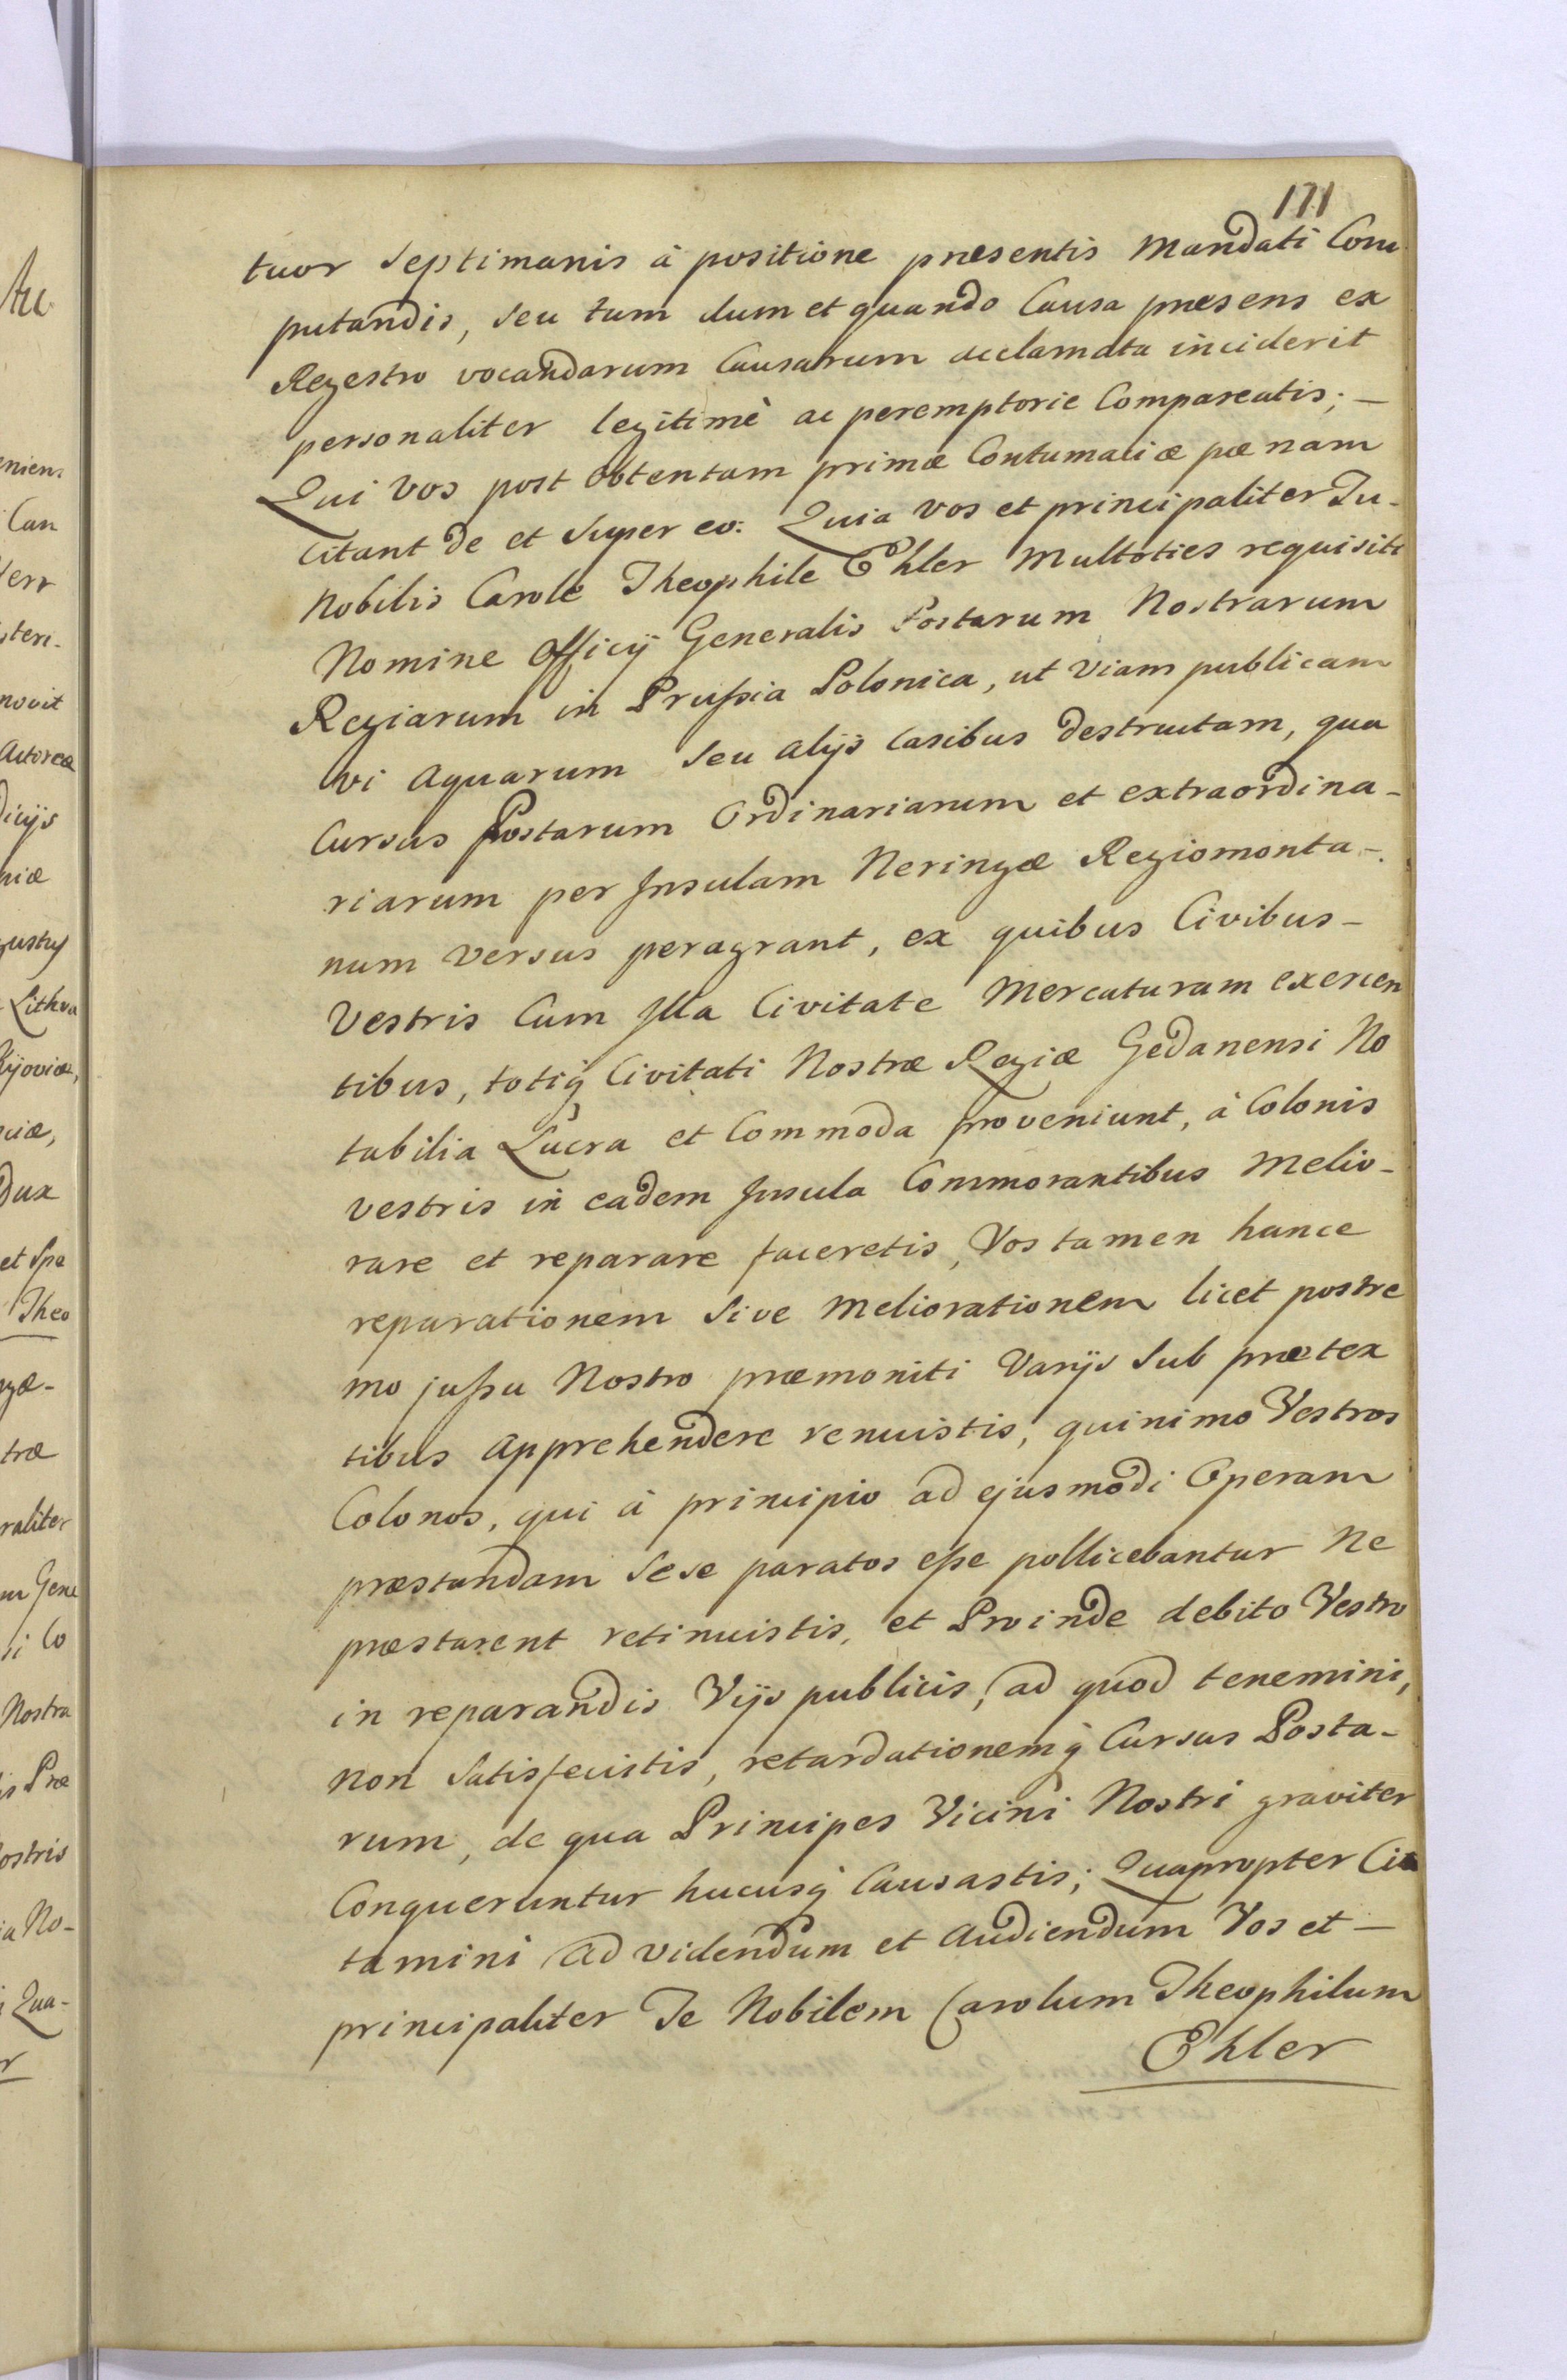 171
tuor Septimanis à positione præsentis Mandati Com
putandis, seu tum dum et quando Causa præsens ex
Regestro vocandarum Causarum acclamata inciderit
personaliter legitimè ac peremptorie Compareatis; —
Qui Vos post obtentam primæ Contumaciæ pænam
Citant de et Super eo: Quia Vos et principaliter Tu-
Nobilis Carole Theophile Ehler Multoties requisiti
Nomine Officij Generalis Postarum Nostrarum
Regiarum in Prussia Polonica, ut Viam publicam
vi Aquarum Seu alijs Casibus destructam, qua
Cursus Postarum Ordinariarum et extraordina-
riarum per Insulam Neringæ Regiomonta-
num versus peragrant, ex quibus Civibus-
Vestris Cum Illa Civitate Mercaturam exercen
tibus, totiq Civitati Nostræ Regiæ Gedanensi No
tabilia Lucra et Commoda proveniunt, à Colonis
vestris in eadem Insula Commorantibus Melio-
rare et reparare faceretis, Vos tamen hance
reparationem Sive Meliorationem licet postre
mo jussu Nostro præmoniti Varijs Sub prætex
tibus apprehendere renuistis, quinimo Vestros
Colonos, qui à principio ad ejusmodi Operam
præstandam Sese paratos esse pollicebantur Ne
præstarent retinuistis, et Proinde debito Vestro
in reparandis Vijs publicis, ad quod tenemini,
non Satisfecistis, retardationemq Cursus Posta-
rum, de qua Principes Vicini Nostri graviter
Conqueruntur hucusq Causastis; Quapropter Ci
tamini ad videndum et audiendum Vos et —
principaliter Te Nobilem Carolum Theophilum
Ehler